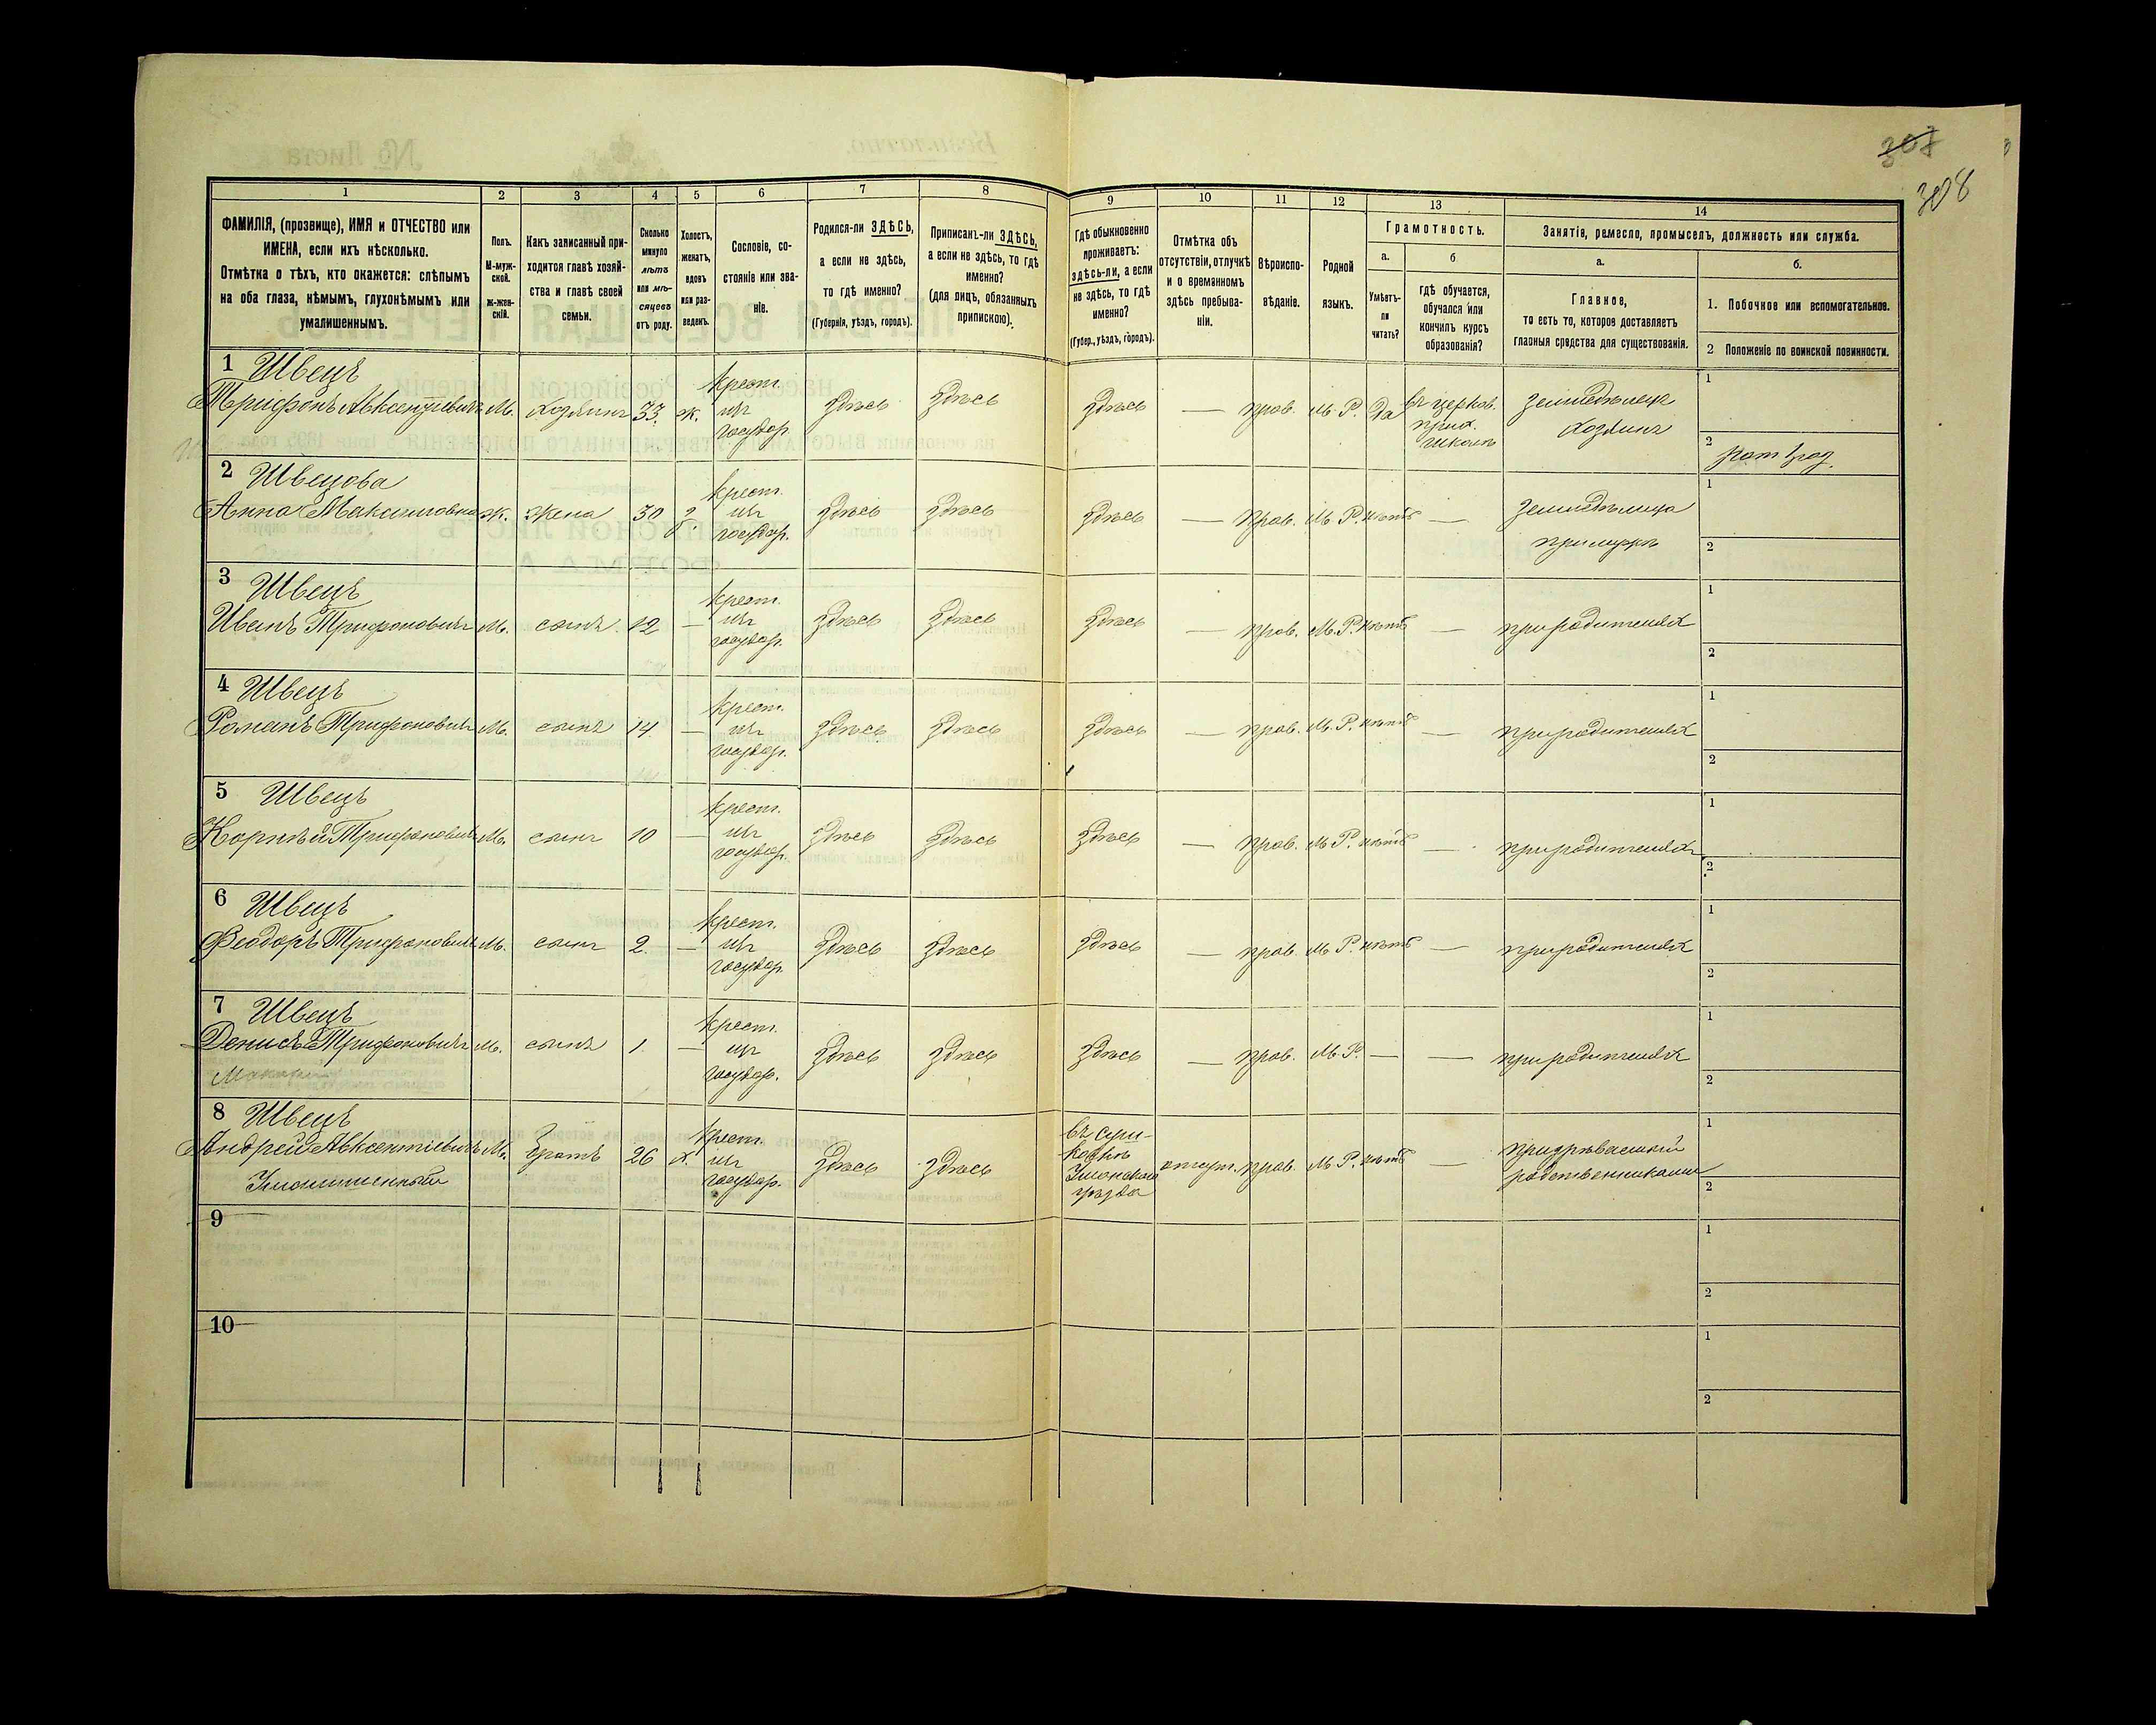 307
308
1
2
3
4
5
6
7
8
9
10
11
12
13
14
ФАМИЛІЯ, (прозвище), ИМЯ и ОТЧЕСТВО или
ИМЕНА, если ихъ нѣсколько.
Отмѣтка о тѣхъ, кто окажется: слѣпымъ
на оба глаза, нѣмымъ, глухонѣмымъ или
умалишеннымъ.
Полъ.
М-муж-
ской.
Ж-жен-
скій.
Какъ записанный при-
ходится главѣ хозяй-
ства и главѣ своей
семьи.
Сколько
минуло
лѣтъ
или мѣ-
сяцевъ
отъ роду.
Холостъ,
женатъ,
вдовъ
или раз-
веденъ.
Сословіе, со-
стояніе или зва-
ніе.
Родился-ли ЗДѢСЬ,
а если не здѣсь,
то гдѣ именно?
(Губернія, уѣздъ, городъ).
Приписанъ-ли ЗДѢСЬ,
а если не здѣсь, то гдѣ
именно?
(для лицъ, обязанныхъ
припискою).
Гдѣ обыкновенно
проживаетъ:
здѣсь-ли, а если
не здѣсь, то гдѣ
именно?
(Губер., уѣздъ, городъ).
Отмѣтка объ
отсутствіи, отлучкѣ
и о временномъ
здѣсь пребыва-
ніи.
Вѣроиспо-
вѣданіе.
Родной
языкъ.
Грамотность.
а.
Умѣетъ-
ли
читать?
б
гдѣ обучается,
обучался или
кончилъ курсъ
образованія?
Занятія, ремесло, промыселъ, должность или служба.
а.
Главное,
то есть то, которое доставляетъ
главныя средства для существованія.
б.
1. Побочное или вспомогательное.
2 Положеніе по воинской повинности.
1 Швецъ
Трифонъ Авксентіевичъ М. хозяинъ 33 ж. крест. изъ государ. здѣсь здѣсь здѣсь — прав. М. Р. Да въ церков. прих. школѣ земледѣлецъ хозяинъ
1
2
2 Швецова
Анна Максимовна ж. жена 30 крест. изъ государ. здѣсь здѣсь здѣсь — прав. М. Р. нѣтъ — земледѣлица при мужѣ
1
2
3 Швецъ
Иванъ Трифоновичъ М. сынъ 12 — крест. изъ государ. здѣсь здѣсь здѣсь — прав. М. Р. нѣтъ — при родителяхъ
1
2
4 Швецъ
Романъ Трифоновичъ М. сынъ 14 — крест. изъ государ. здѣсь здѣсь здѣсь — прав. М. Р. нѣтъ — при родителяхъ
1
2
5 Швецъ
Корнѣй Трифоновичъ М. сынъ 10 — крест. изъ государ. здѣсь здѣсь здѣсь — прав. М. Р. нѣтъ — при родителяхъ
1
2
6 Швецъ
Феодоръ Трифоновичъ М. сынъ 2. — крест. изъ государ. здѣсь здѣсь здѣсь — прав. М. Р. нѣтъ — при родителяхъ
1
2
7 Швецъ
Денисъ Трифоновичъ М. сынъ 1. — крест. изъ государ. здѣсь здѣсь здѣсь — прав. М. Р. — — при родителяхъ
1
2
8 Швецъ
Андрей Авксентіевичъ М. братъ 26 х. крест. изъ государ. здѣсь здѣсь уѣзда отсут. прав. М. Р. нѣтъ — призрѣваемый родственниками
Умалишенный
1
2
9
1
2
10
1
2